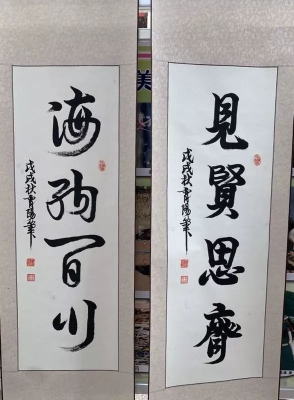 海納百川
戊戌秋陽筆
見賢思齊
戊戌秋陽筆
美